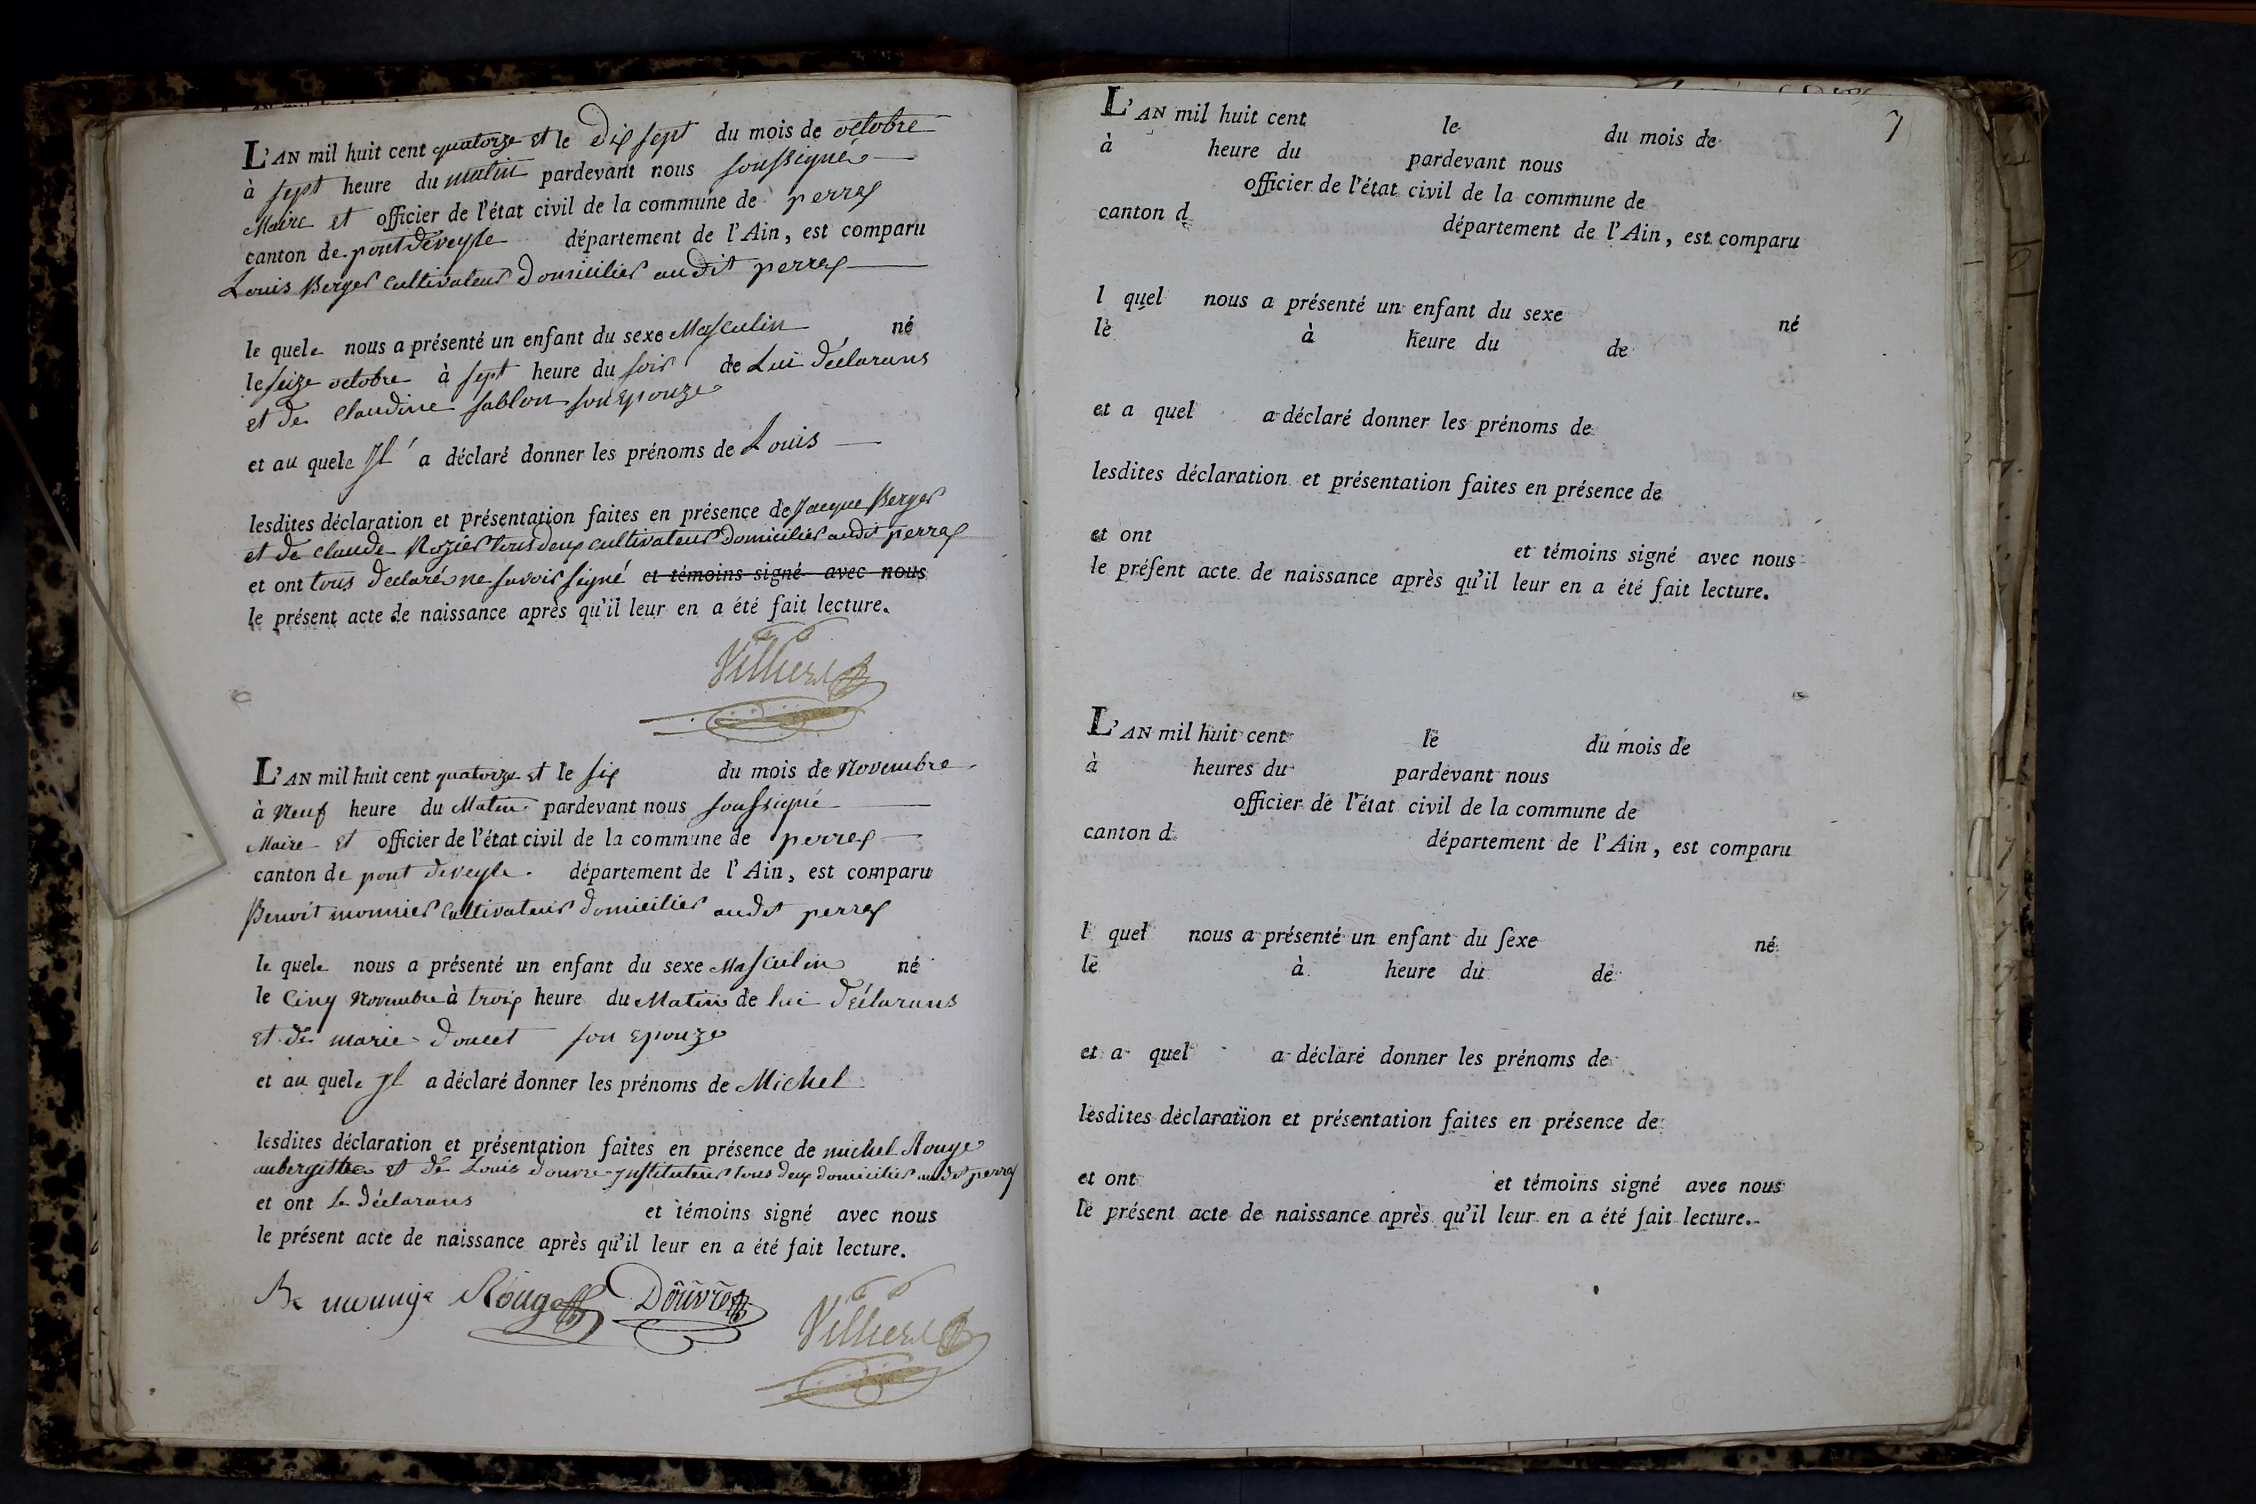 L'AN mil huit cent quatorze et le Dix sept du mois de octobre
à sept heure du matin pardevant nous soussigné
Maire et officier de l'état civil de la commune de perrex
canton de pont deveyle département de l'Ain, est comparu
Louis Berger cultivateur domicilier audit perrex
le quele nous a présenté un enfant du sexe Masculin né
le seize octobre à sept heure du soir de Lui déclarans
et de Claudine sablon son Epouze
et au quele Jl a déclaré donner les prénoms de Louis
lesdites déclaration et présentation faites en présence de Jacque Berger
et de claude Rozier tous deux cultivateur domicilier audit perrex
et ont tous declaré ne savoir signé et témoins signé avec nous
le présent acte de naissance après qu'il leur en a été fait lecture.
Villierd
L'AN mil huit cent quatorze et le six du mois de Novembre
à Neuf heure du Matin pardevant nous soussigné
Maire et officier de l'état civil de la commune de perrex
canton de pont deveyle département de l'Ain, est comparu
Benoit monnier Cultivateur domicilier audit perrex
le quele nous a présenté un enfant du sexe Masculin né
le Cinq Novembre à trois heure du Matin de lui déclarans
et de marie doucet son Epouze
et au quele Jl a déclaré donner les prénoms de Michel
lesdites déclaration et présentation faites en présence de michel Rouge
aubergiste et de Louis douvre Jnstituteur tous deux domicilier audit perrex
et ont Le déclarans et témoins signé avec nous
le présent acte de naissance après qu'il leur en a été fait lecture.
Be Rouge Douvre Villierd
7
L'AN mil huit cent le du mois de
à heure du pardevant nous
officier de l'état civil de la commune de
canton d département de l'Ain, est comparu
l quel nous a présenté un enfant du sexe né
le à heure du de
et a quel a déclaré donner les prénoms de
lesdites déclaration et présentation faites en présence de
et ont et témoins signé avec nous
le préſent acte de naissance après qu'il leur en a été fait lecture.
L'AN mil huit cent le du mois de
à heures du pardevant nous
officier de l'état civil de la commune de
canton d département de l'Ain, est comparu
l quel nous a présenté un enfant du ſexe né
le à heure du de
et a quel a déclaré donner les prénoms de
lesdites déclaration et présentation faites en présence de
et ont et témoins signé avec nous
le présent acte de naissance après qu'il leur en a été fait lecture.